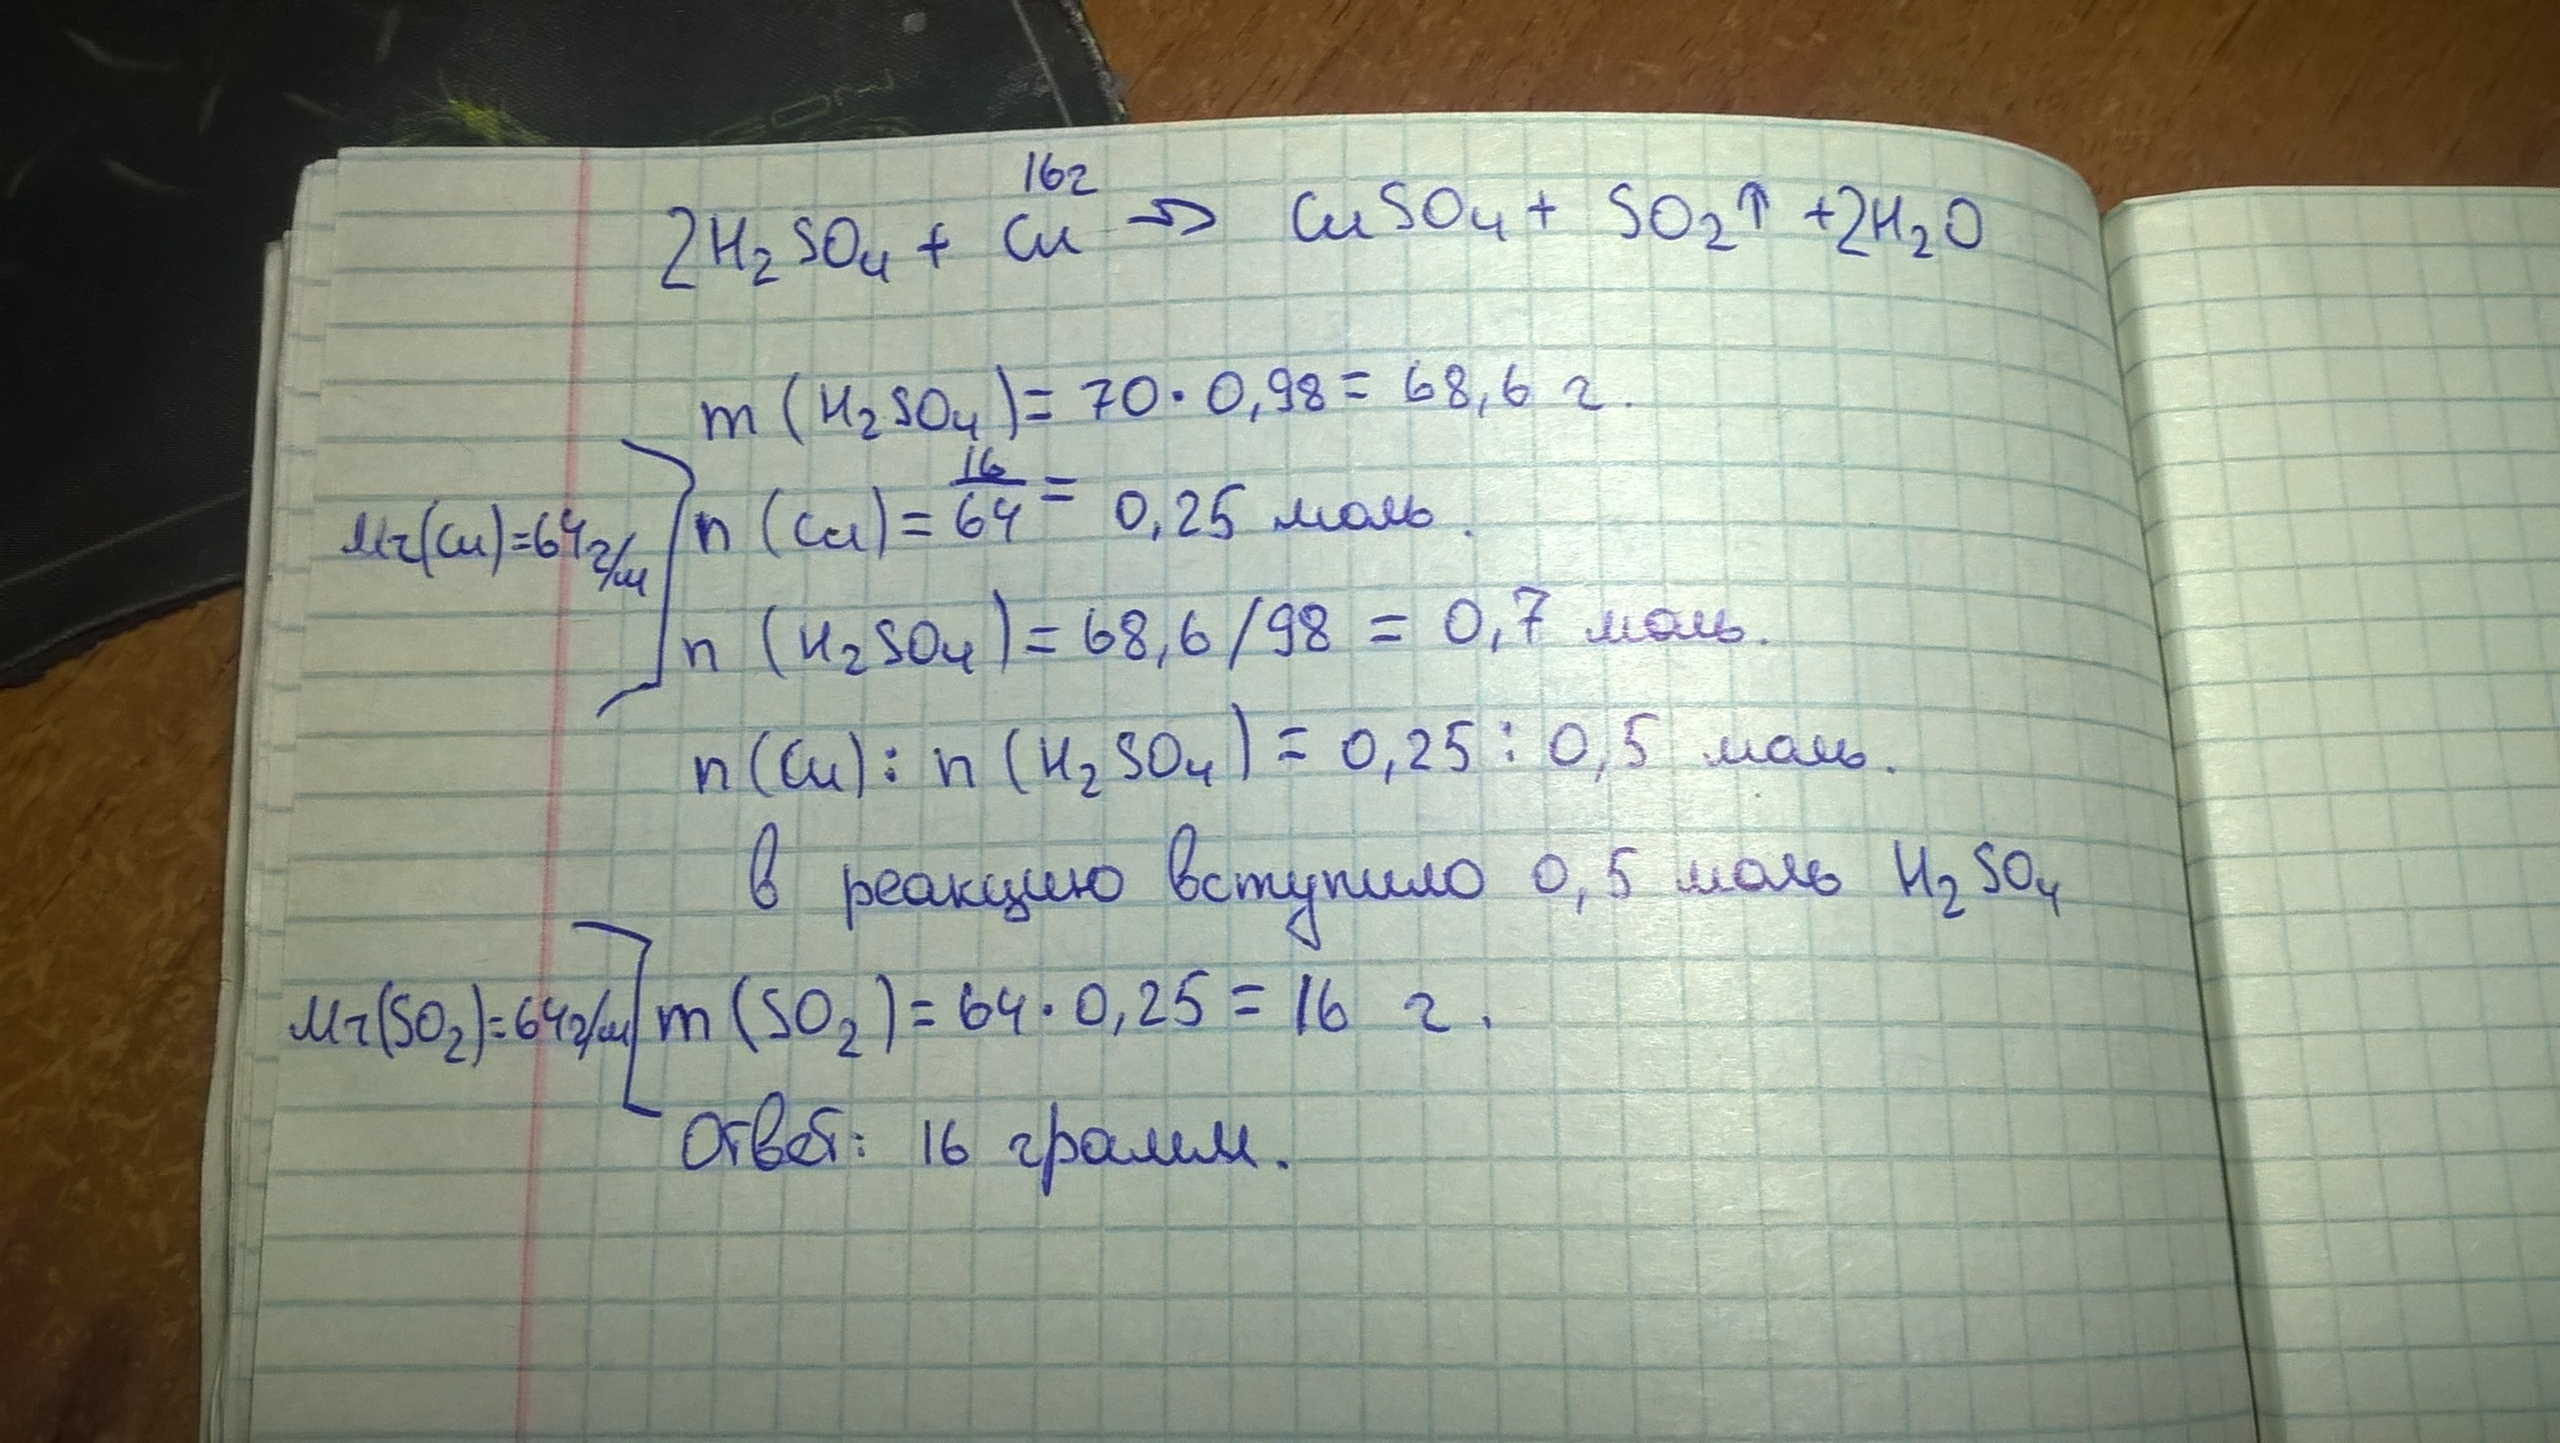 16г
2H₂SO₄ + Cu => CuSO₄ + SO₂↑ + 2H₂O
m (H₂SO₄) = 70 · 0,98 = 68,6 г.
Mr(Cu)=64г/м
n (Cu) = 16/64 = 0,25 моль.
n (H₂SO₄) = 68,6/98 = 0,7 моль.
n(Cu) : n (H₂SO₄) = 0,25 : 0,5 моль.
В реакцию вступило 0,5 моль H₂SO₄
Mr(SO₂)=64г/м
m (SO₂) = 64 · 0,25 = 16 г.
Ответ: 16 грамм.